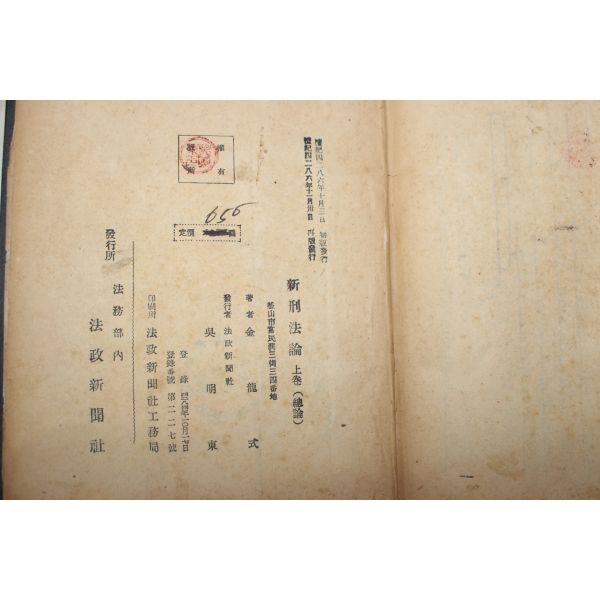 檀紀四二八六年十月三日 初版發行
檀紀四二八六年十一月卅日 再版發行
新刑法論 上卷 (總論)
釜山市富民洞三街三四番地
著者 金龍式
發行者 法政新聞社
吳明東
登錄 四二八四年一〇月一七日
登錄番號 第二二七號
印刷所 法政新聞社工務局
發行所 法務部內
法政新聞社
權有
定價
656
一